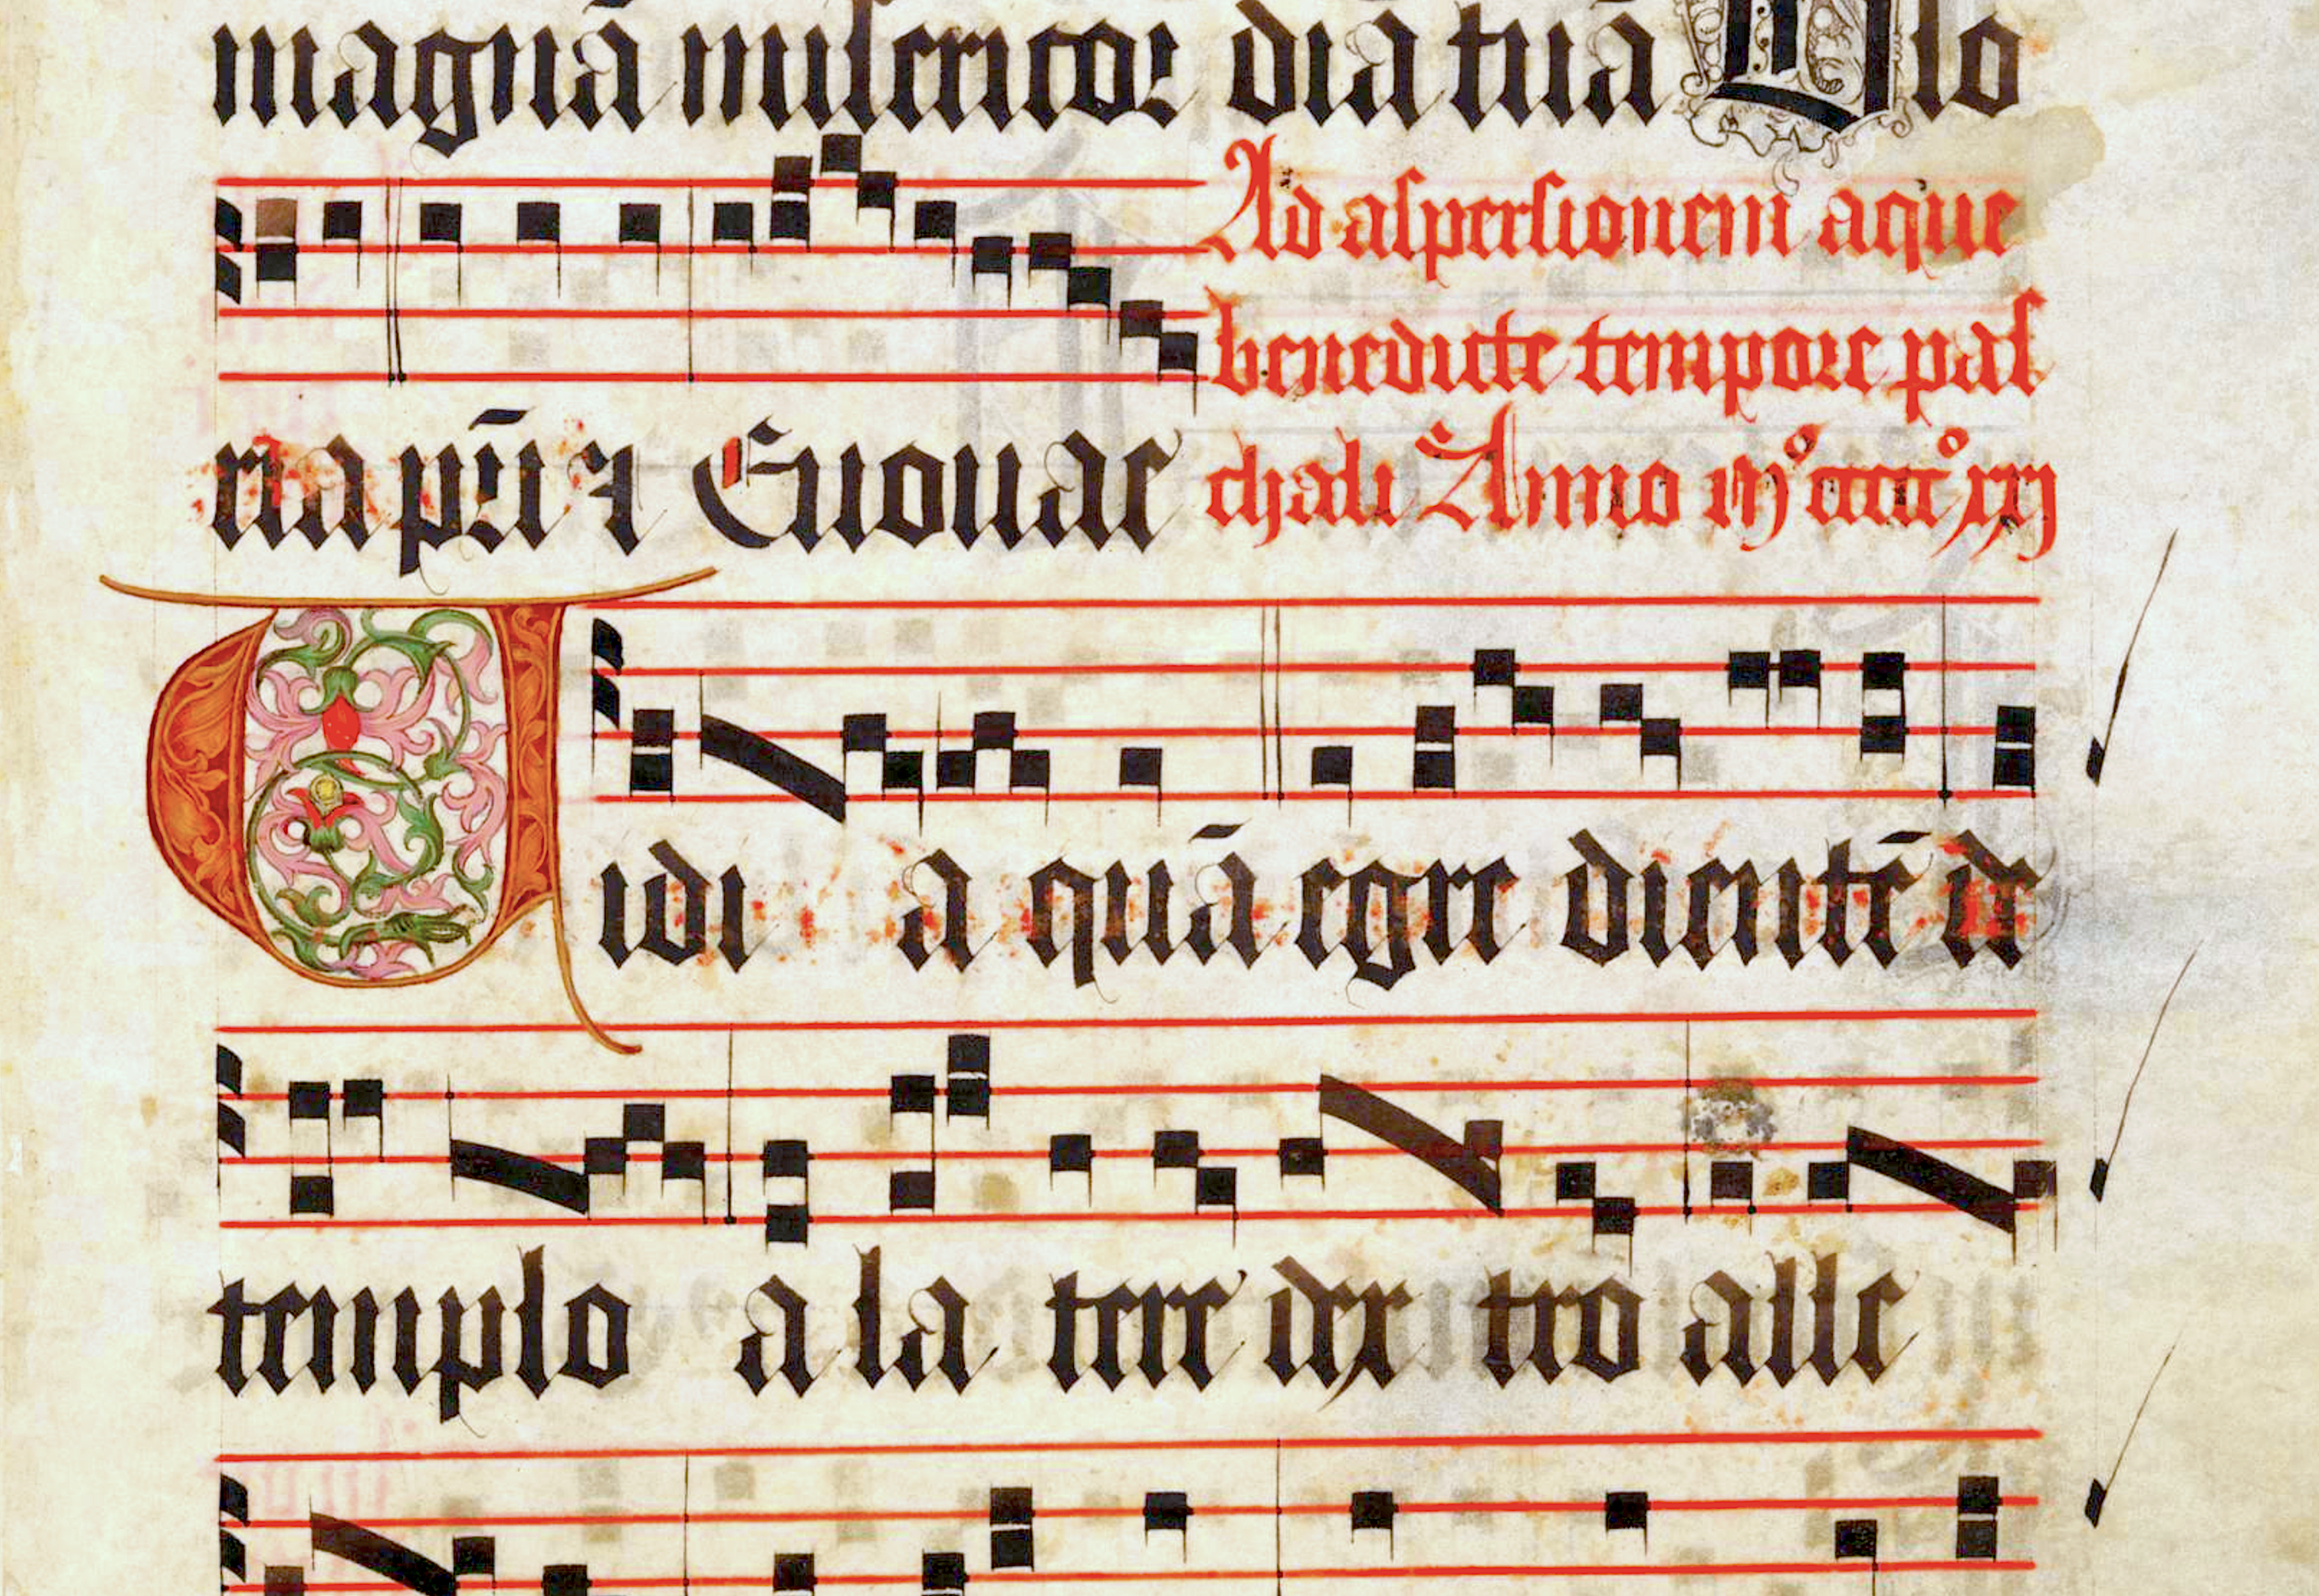 magnā misericor diā tuā Glo
Ad aspersionem aque
benedicte tempore pas
ria pr̄i ⁊ Euouae chali Anno mº ccccº xxj
Vidi a quā egre dientē de
templo a la tere dex tro alle